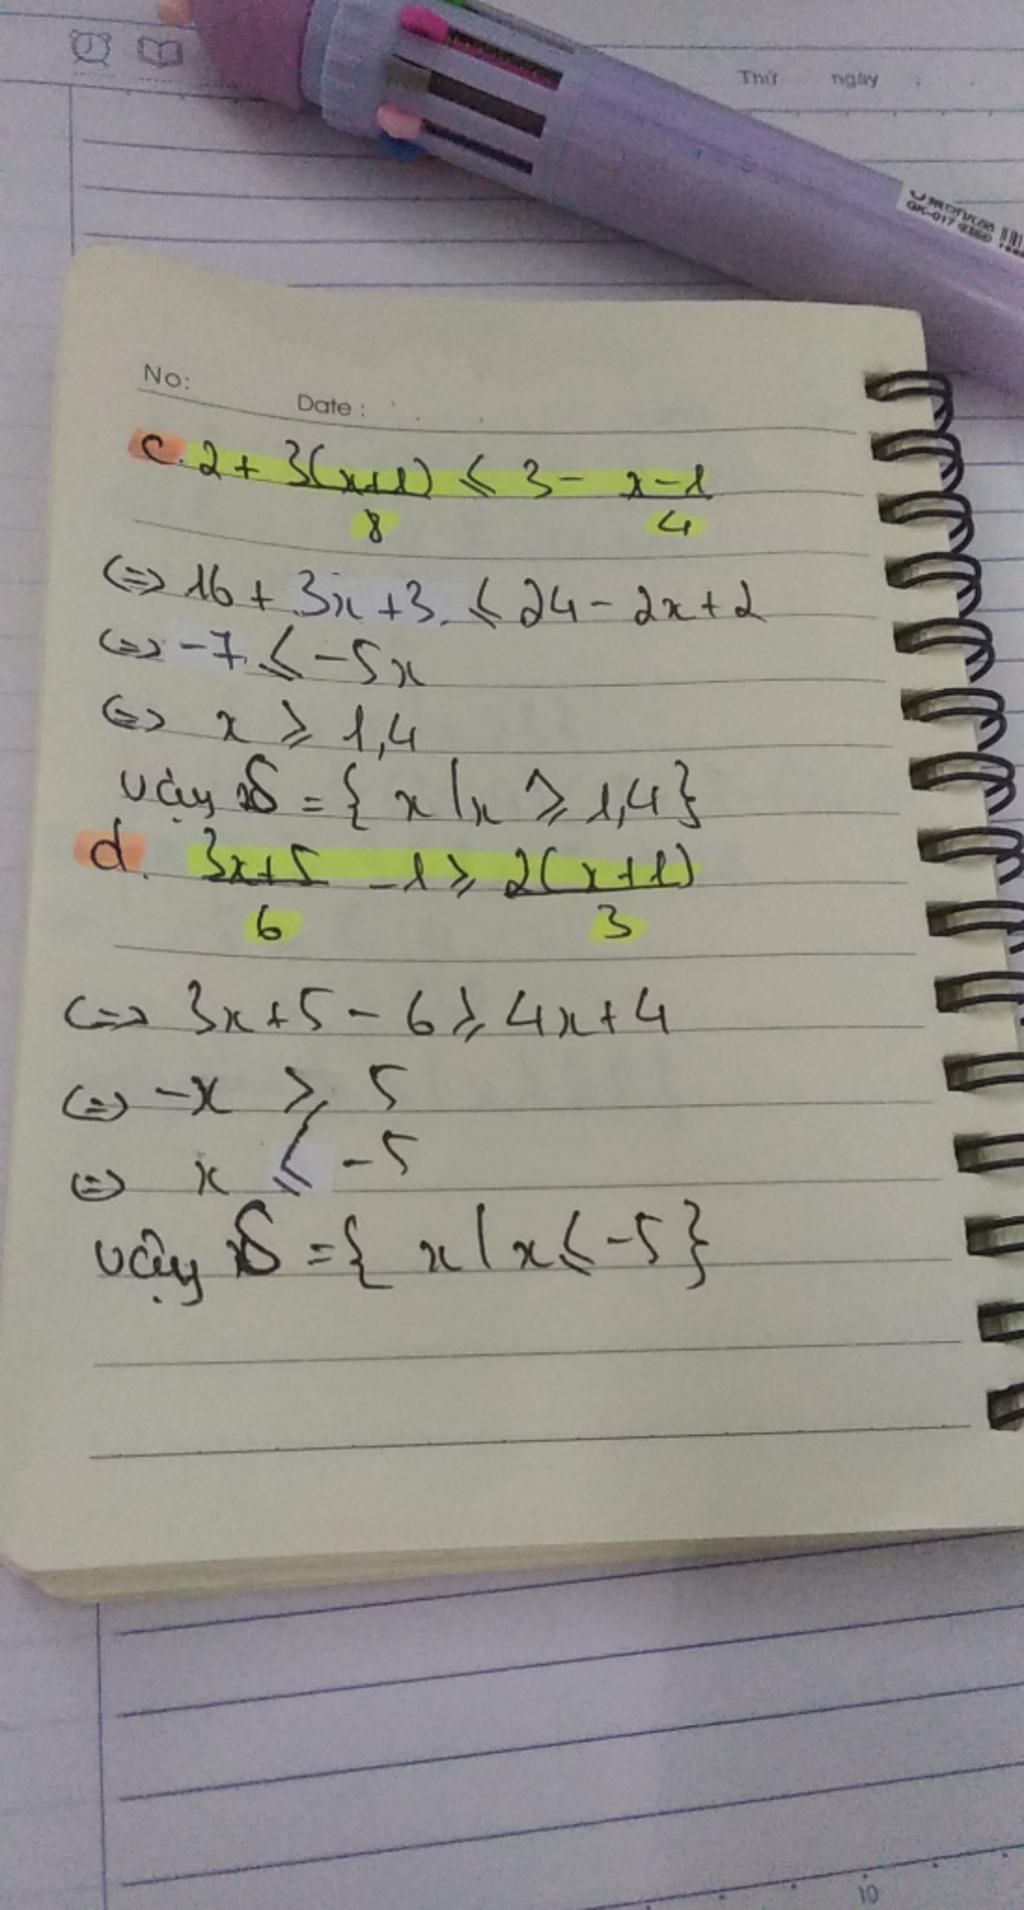 Thứ ngày
MONKAA
GK-017
No:
Date:
c. 2 + 3(x+1) ≤ 3 - x-1
8 4
<=> 16 + 3x + 3 ≤ 24 - 2x + 2
<=> -7 ≤ -5x
<=> x ≥ 1,4
vậy S = { x | x ≥ 1,4}
d. 3x+5 -1 ≥ 2(x+1)
6 3
<=> 3x+5 - 6 ≥ 4x+4
<=> -x ≥ 5
<=> x ≤ -5
vậy S = { x | x ≤ -5}
10